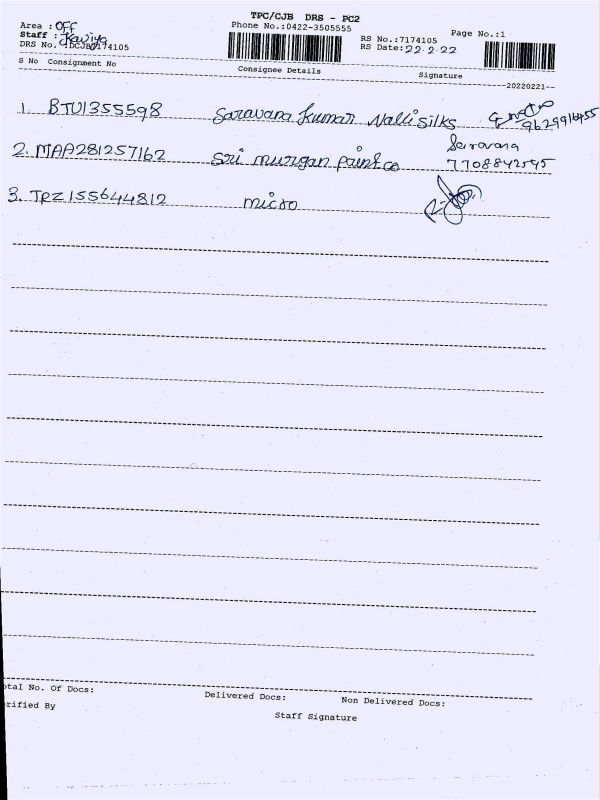 TPC/CJB DRS - PC2
Area : OFF
Phone No.:0422-3505555
Staff : Kaviya
RS No.:7174105 Page No.:1
DRS No. :DCJB7174105
RS Date:22.2.22
S No Consignment No Consignee Details Signature
--20220221--
1. BTU1355598 Saravana Kumar Nalli silks
9629916455
2. MAA281257162 Sri murgan paint co Saravana
7708842595
3. TRZ155644812 micro
otal No. Of Docs: Delivered Docs: Non Delivered Docs:
erified By Staff Signature